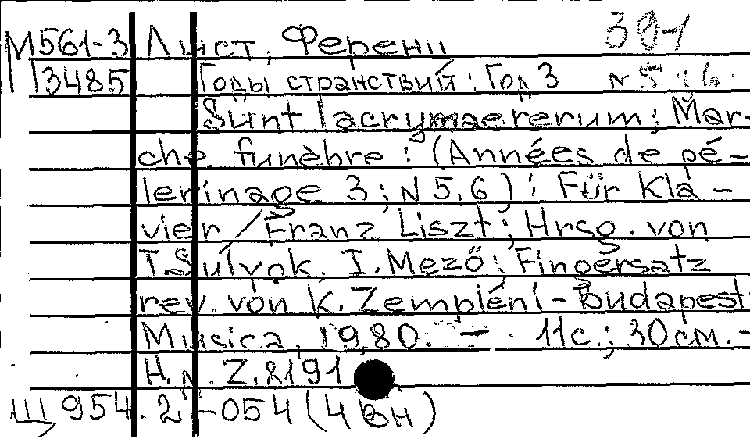 М561-3 Лист, Ференц 30-1
13485 Годы странствий: Год 3 N 5; 6.
Sunt lacrymaererum; Mar-
che funèbre: (Années de pé-
lerinage 3; N 5, 6): Für Kla-
vier / Franz Liszt; Hrsg. von
I. Sulyok, I. Mezö; Fingersatz
rev. von K. Zempléni - Budapest:
Musica, 1980. - 11с.; 30см. -
H. N. Z. 8191
Ш 954.2-054 (4Вн)